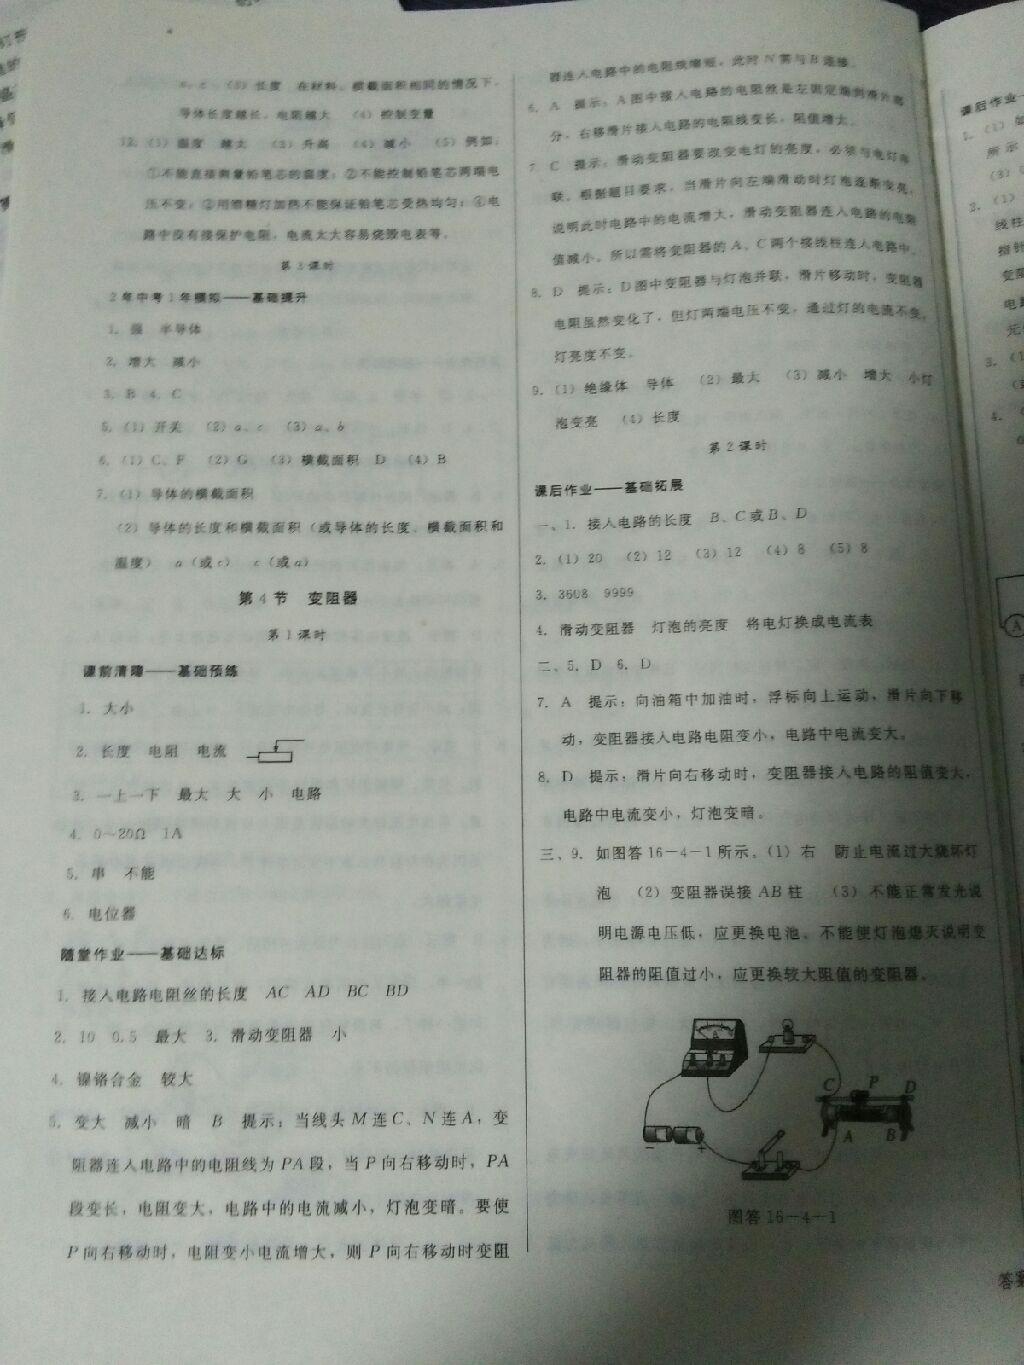 a、c （3）长度　在材料、横截面积相同的情况下，
导体长度越长，电阻越大　（4）控制变量
12.（1）温度　越大　（3）升高　（4）减小　（5）例如：
①不能直接测量铅笔芯的温度；②不能控制铅笔芯两端电
压不变；③用酒精灯加热不能保证铅笔芯受热均匀；④电
路中没有接保护电阻，电流太大容易烧毁电表等。
第3课时
2年中考1年模拟——基础提升
1. 强　半导体
2. 增大　减小
3. B　4. C
5.（1）开关　（2）a、c　（3）a、b
6.（1）C、F　（2）G　（3）横截面积　D　（4）B
7.（1）导体的横截面积
（2）导体的长度和横截面积（或导体的长度、横截面积和
温度）　a（或c）　c（或a）
第4节　变阻器
第1课时
课前清障——基础预练
1. 大小
2. 长度　电阻　电流
3. 一上一下　最大　大　小　电路
4. 0～20Ω　1A
5. 串　不能
6. 电位器
随堂作业——基础达标
1. 接入电路电阻丝的长度　AC　AD　BC　BD
2. 10　0.5　最大　3. 滑动变阻器　小
4. 镍铬合金　较大
5. 变大　减小　暗　B　提示：当线头M连C、N连A，变
阻器连入电路中的电阻线为PA段，当P向右移动时，PA
段变长，电阻变大，电路中的电流减小，灯泡变暗。要使
P向右移动时，电阻变小电流增大，则P向右移动时变阻
器连入电路中的电阻线缩短，此时N需与B连接。
6. A　提示：A图中接入电路的电阻丝是左固定端到滑片部
分，右移滑片接入电路的电阻线变长，阻值增大。
7. C　提示：滑动变阻器要改变电灯的亮度，必须与电灯串
联。根据题目要求，当滑片向左端滑动时灯泡逐渐变亮，
说明此时电路中的电流增大，滑动变阻器连入电路的电阻
值减小。所以需将变阻器的A、C两个接线柱连入电路中。
8. D　提示：D图中变阻器与灯泡并联，滑片移动时，变阻器
电阻虽然变化了，但灯两端电压不变，通过灯的电流不变，
灯亮度不变。
9.（1）绝缘体　导体　（2）最大　（3）减小　增大　小灯
泡变亮　（4）长度
第2课时
课后作业——基础拓展
一、1. 接入电路的长度　B、C或B、D
2.（1）20　（2）12　（3）12　（4）8　（5）8
3. 3608　9999
4. 滑动变阻器　灯泡的亮度　将电灯换成电流表
二、5. D　6. D
7. A　提示：向油箱中加油时，浮标向上运动，滑片向下移
动，变阻器接入电路电阻变小，电路中电流变大。
8. D　提示：滑片向右移动时，变阻器接入电路的阻值变大，
电路中电流变小，灯泡变暗。
三、9. 如图答16－4－1所示。（1）右　防止电流过大烧坏灯
泡　（2）变阻器误接AB柱　（3）不能正常发光说
明电源电压低，应更换电池。不能使灯泡熄灭说明变
阻器的阻值过小，应更换较大阻值的变阻器。
A
C P D
A B
－ ＋
图答16－4－1
课后作业
所示
线柱
指针
变阻
电路
A
答案